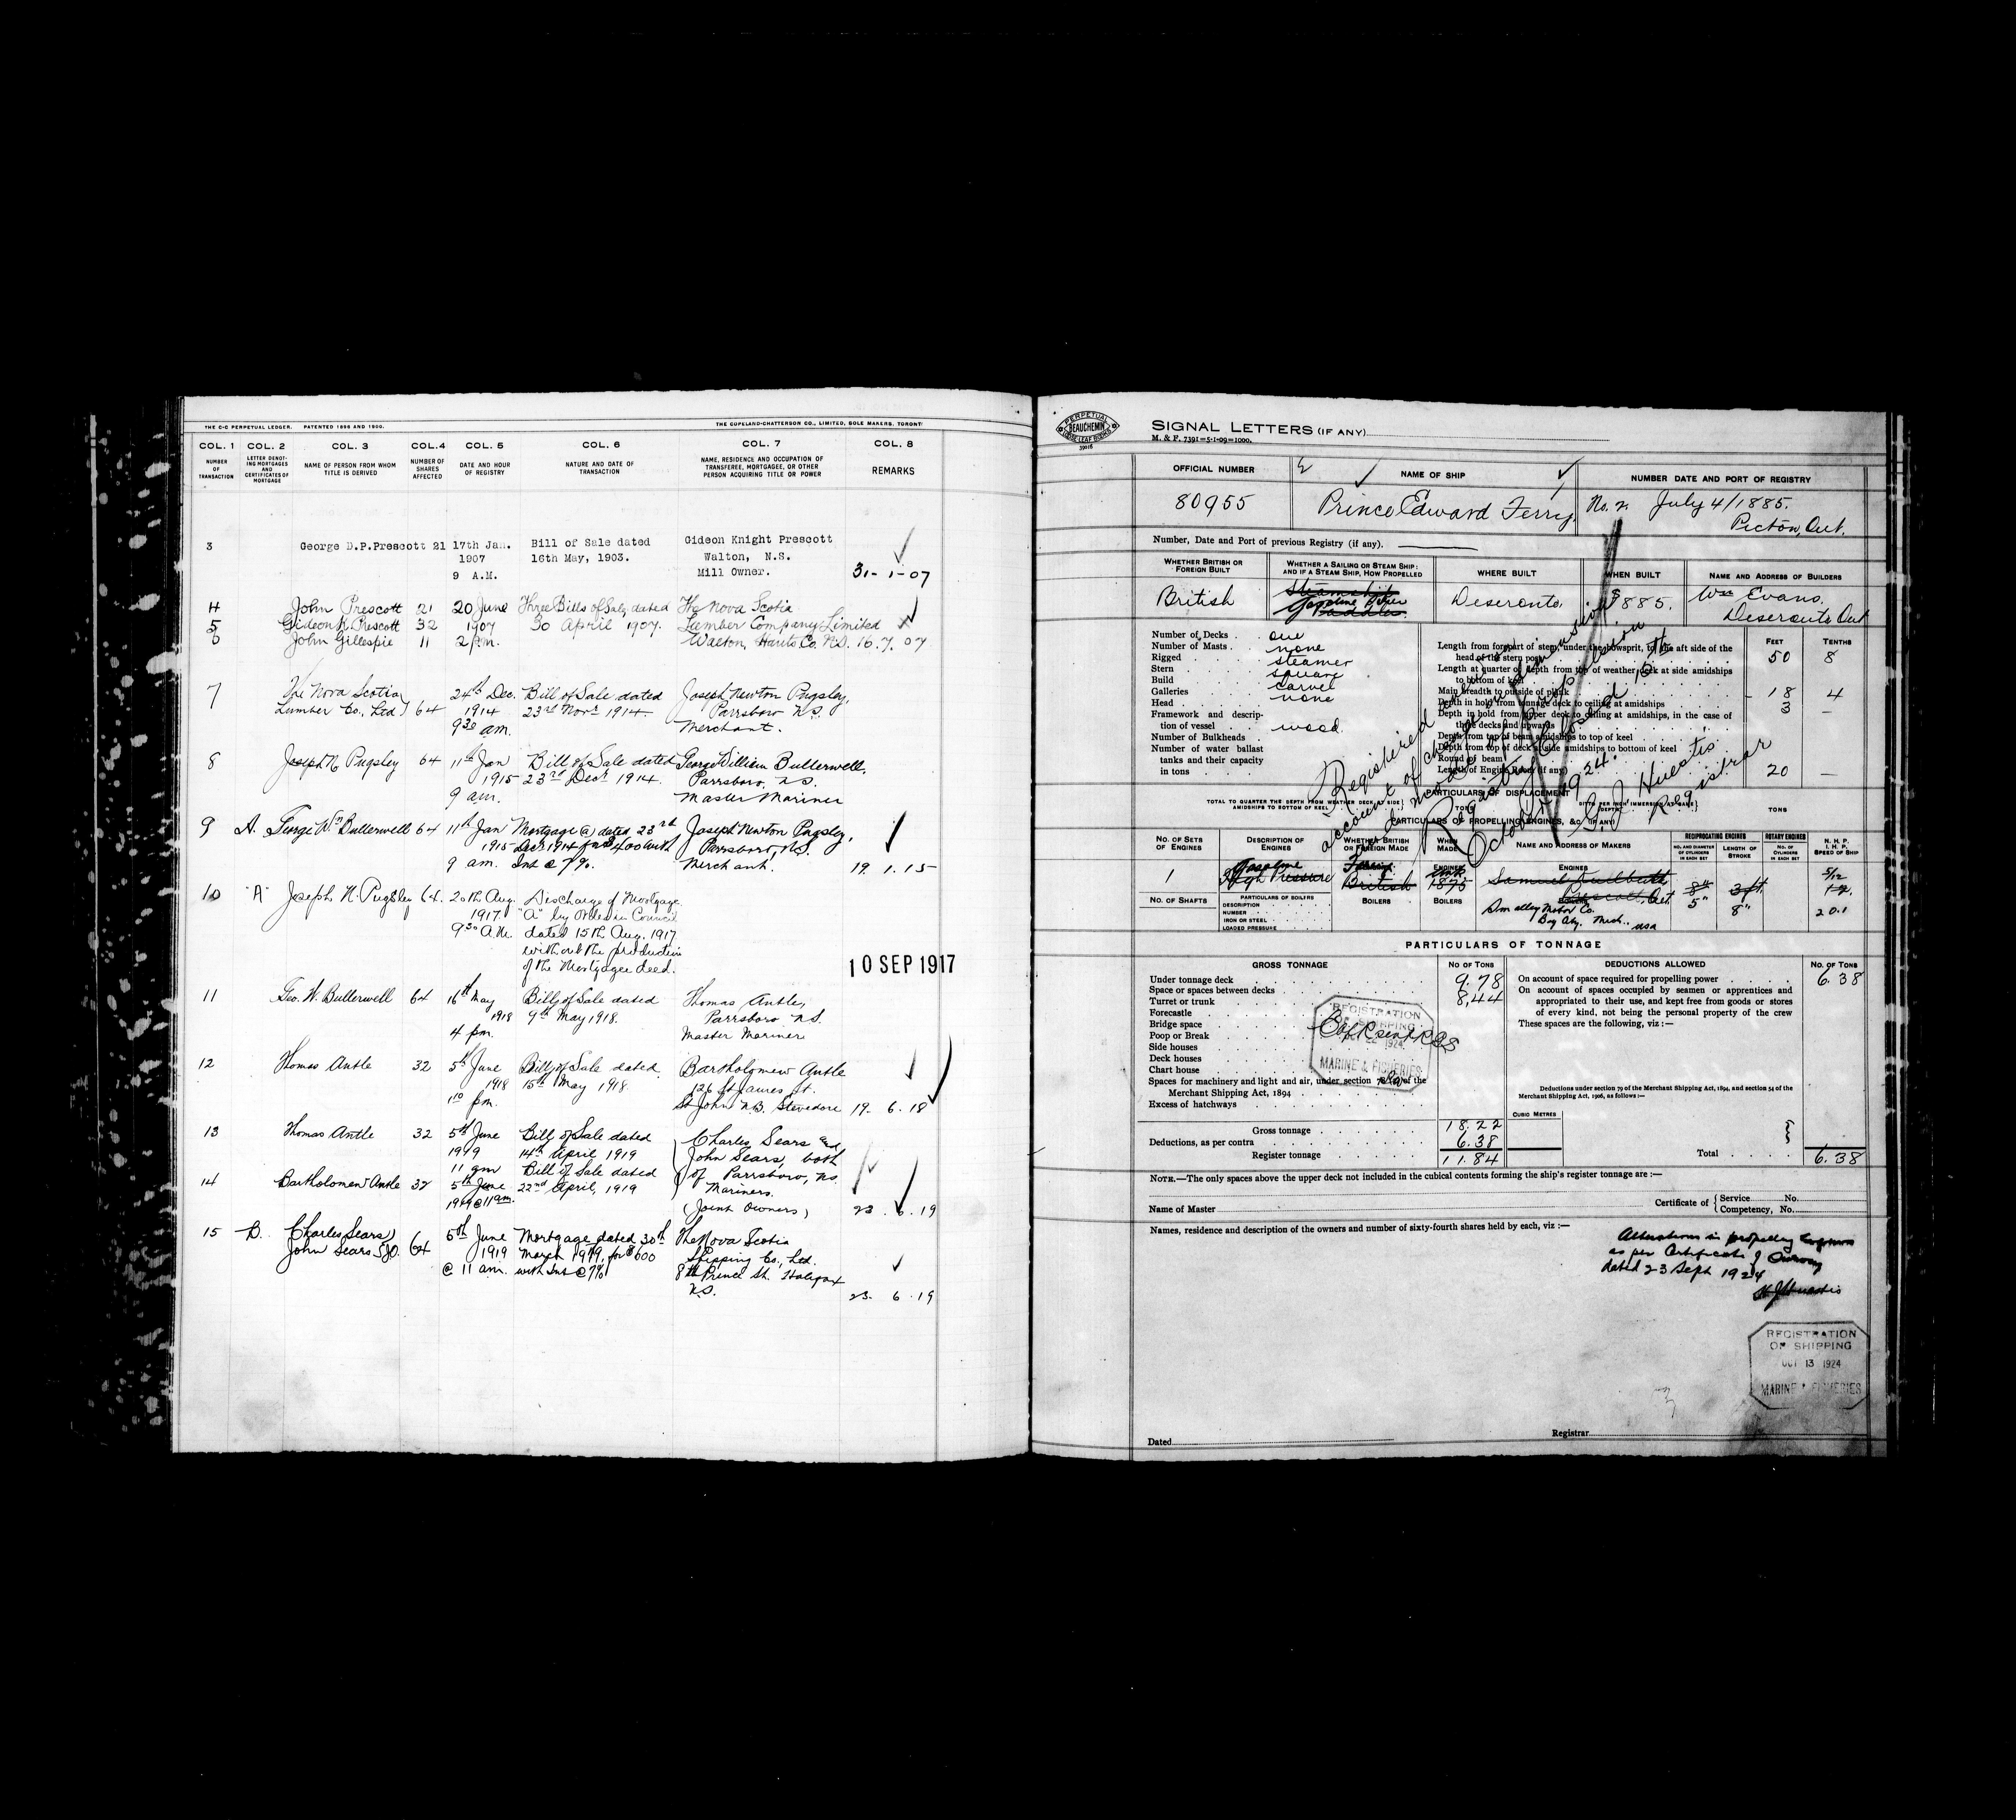 THE C-C PERPETUAL LEDGER. PATENTED 1896 AND 1900.
THE COPELAND-CHATTERSON CO., LIMITED, SOLE MAKERS, TORONT
COL. 1 COL. 2 COL. 3 COL. 4 COL. 5 COL. 6 COL. 7 COL. 8
NUMBER OF TRANSACTION
LETTER DENOTING MORTGAGES AND CERTIFICATES OF MORTGAGE
NAME OF PERSON FROM WHOM TITLE IS DERIVED
NUMBER OF SHARES AFFECTED
DATE AND HOUR OF REGISTRY
NATURE AND DATE OF TRANSACTION
NAME, RESIDENCE AND OCCUPATION OF TRANSFEREE, MORTGAGEE, OR OTHER PERSON ACQUIRING TITLE OR POWER
REMARKS
3 George D.P.Prescott 21 17th Jan. Bill of Sale dated Gideon Knight Prescott
1907 16th May, 1903. Walton, N.S.
9 A.M. Mill Owner. 31-1-07
4 John Prescott 21 20 June Three Bills of Sale, dated The Nova Scotia
5 Gideon K. Prescott 32 1907 30 April 1907. Lumber Company Limited
6 John Gillespie 11 2 p.m. Walton, Hants Co. N.S. 16.7.07
7 The Nova Scotia 24th Dec. Bill of Sale dated Joseph Newton Pugsley,
Lumber Co., Ltd 64 1914 23rd Novr 1914. Parrsboro N.S.
9 30 am. Merchant.
8 Joseph N Pugsley 64 11th Jan Bill of Sale dated George William Bullerwell,
1915 23rd Decr 1914. Parrsboro, N.S.
9 am. Master Mariner
9 A. George Wm Bullerwell 64 11th Jan Mortgage @ dated 23rd Joseph Newton Pugsley,
1915 Decr 1914 for $400 with Parrsboro, N.S.
9 am. Int @ 7%. Merchant. 19.1.15
10 "A" Joseph N. Pugsley 64. 20th Aug. Discharge of Mortgage
1917. "A" by Order in Council
9 30 A.M. dated 15th Aug. 1917
without the production
of the Mortgage deed.
10 SEP 1917
11 Geo. W. Bullerwell 64 16th May Bill of Sale dated Thomas Antle,
1918 9th May 1918. Parrsboro N.S.
4 pm. Master Mariner
12 Thomas Antle 32 5th June Bill of Sale dated Bartholomew Antle
1918 15th May 1918. 126 St James St.
1 10 pm. St John N.B. Stevedore 19.6.18
13 Thomas Antle 32 5th June Bill of Sale dated Charles Sears and
1919 14th April 1919 John Sears, both
11 am Bill of Sale dated of Parrsboro, N.S.
14 Bartholomew Antle 32 5th June 22nd April, 1919 Mariners.
1919 @ 11 am. (Joint Owners) 23.6.19
15 B. Charles Sears) 5th June Mortgage dated 30th The Nova Scotia
John Sears J.O. 64 1919 March 1919, for $600 Shipping Co., Ltd.
@ 11 am. with Int @ 7% Prince St. Halifax
N.S. 23.6.19
PERPETUAL BEAUCHEMIN LOOSE LEAF BOOKS
39016
SIGNAL LETTERS (IF ANY)
M. & F. 7391=5-1-09=1000.
OFFICIAL NUMBER NAME OF SHIP NUMBER DATE AND PORT OF REGISTRY
80955 Prince Edward Ferry. No. 2 July 4/1885.
Picton, Ont.
Number, Date and Port of previous Registry (if any).
WHETHER BRITISH OR FOREIGN BUILT
WHETHER A SAILING OR STEAM SHIP: AND IF A STEAM SHIP, HOW PROPELLED
WHERE BUILT
WHEN BUILT
NAME AND ADDRESS OF BUILDERS
British Steamship Deseronto, 1885. Wm Evans.
Paddles Deseronto Ont
Number of Decks . one
Number of Masts . none
Rigged steamer
Stern square
Build carvel
Galleries none
Head
Framework and description of vessel wood
Number of Bulkheads
Number of water ballast tanks and their capacity in tons
FEET TENTHS
Length from forepart of stem, under the bowsprit, to the aft side of the head of the stern post 50 8
Length at quarter of depth from top of weather deck at side amidships to bottom of keel
Main breadth to outside of plank 18 4
Depth in hold from tonnage deck to ceiling at amidships 3 —
Depth in hold from upper deck to ceiling at amidships, in the case of three decks and upwards
Depth from top of beam amidships to top of keel
Depth from top of deck at side amidships to bottom of keel
Round of beam
Length of Engine Room (if any) 20 —
Registered anew on
account of change in dimensions
and mode of propulsion
Registry Closed 13th
October 1924.
G. J. Huestis
Registrar
PARTICULARS OF DISPLACEMENT
PARTICULARS OF PROPELLING ENGINES, &C. (IF ANY)
NO. OF SETS OF ENGINES
DESCRIPTION OF ENGINES
WHETHER BRITISH OR FOREIGN MADE
WHEN MADE
NAME AND ADDRESS OF MAKERS
RECIPROCATING ENGINES
NO. AND DIAMETER OF CYLINDERS IN EACH SET
LENGTH OF STROKE
ROTARY ENGINES
NO. OF CYLINDERS IN EACH SET
N. H. P. I. H. P. SPEED OF SHIP
ENGINES
1 Gasoline Foreign
High Pressure British 1875 8" 3 ft.
Prescott, Ont. 5" 8" 20.1
Smalley Motor Co.
Bay City. Mich. USA
NO. OF SHAFTS
PARTICULARS OF BOILERS
DESCRIPTION
NUMBER
IRON OR STEEL
LOADED PRESSURE
BOILERS BOILERS
PARTICULARS OF TONNAGE
GROSS TONNAGE NO OF TONS DEDUCTIONS ALLOWED NO. OF TONS
Under tonnage deck 9.78
Space or spaces between decks 8.44
Turret or trunk
Forecastle
Bridge space
Poop or Break
Side houses
Deck houses
Chart house
Spaces for machinery and light and air, under section 78 (2) of the Merchant Shipping Act, 1894
Excess of hatchways
Gross tonnage 18.22
Deductions, as per contra 6.38
Register tonnage 11.84
On account of space required for propelling power 6.38
On account of spaces occupied by seamen or apprentices and
appropriated to their use, and kept free from goods or stores
of every kind, not being the personal property of the crew
These spaces are the following, viz :—
Deductions under section 79 of the Merchant Shipping Act, 1894, and section 54 of the
Merchant Shipping Act, 1906, as follows :—
CUBIC METRES
Total 6.38
REGISTRATION
OF SHIPPING
1924
MARINE & FISHERIES
NOTE.—The only spaces above the upper deck not included in the cubical contents forming the ship's register tonnage are :—
Name of Master Certificate of { Service No.
Competency, No.
Names, residence and description of the owners and number of sixty-fourth shares held by each, viz :—
Alterations in propelling Engines
as per Certificate of Survey
dated 23 Sept 1924
REGISTRATION
OF SHIPPING
OCT 13 1924
MARINE & FISHERIES
Dated Registrar